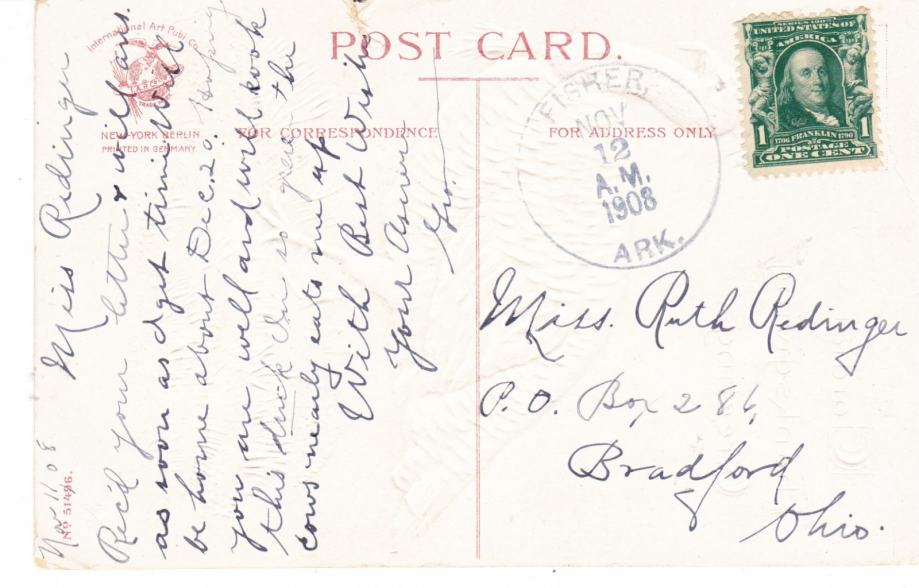 POST CARD.
International Art Publ Co.
TRADE
NEW-YORK BERLIN
PRINTED IN GERMANY
FOR CORRESPONDENCE
FOR ADDRESS ONLY
No 51496.
FISHER,
NOV
12
A.M.
1908
ARK.
SERIES 1902
UNITED STATES OF
AMERICA
1706 FRANKLIN 1790
POSTAGE
1 ONE CENT 1
Nov 11 08
Miss Redinger
Rec'd your letter & will ans.
as soon as I get time. Will
be home about Dec. 29. Hoping
you are well and will cook
this duck. I'm so green the
cows nearly eats me up
With Best Wishes
your
Miss. Ruth Redinger
P. O. Box 286,
Bradford
Ohio.